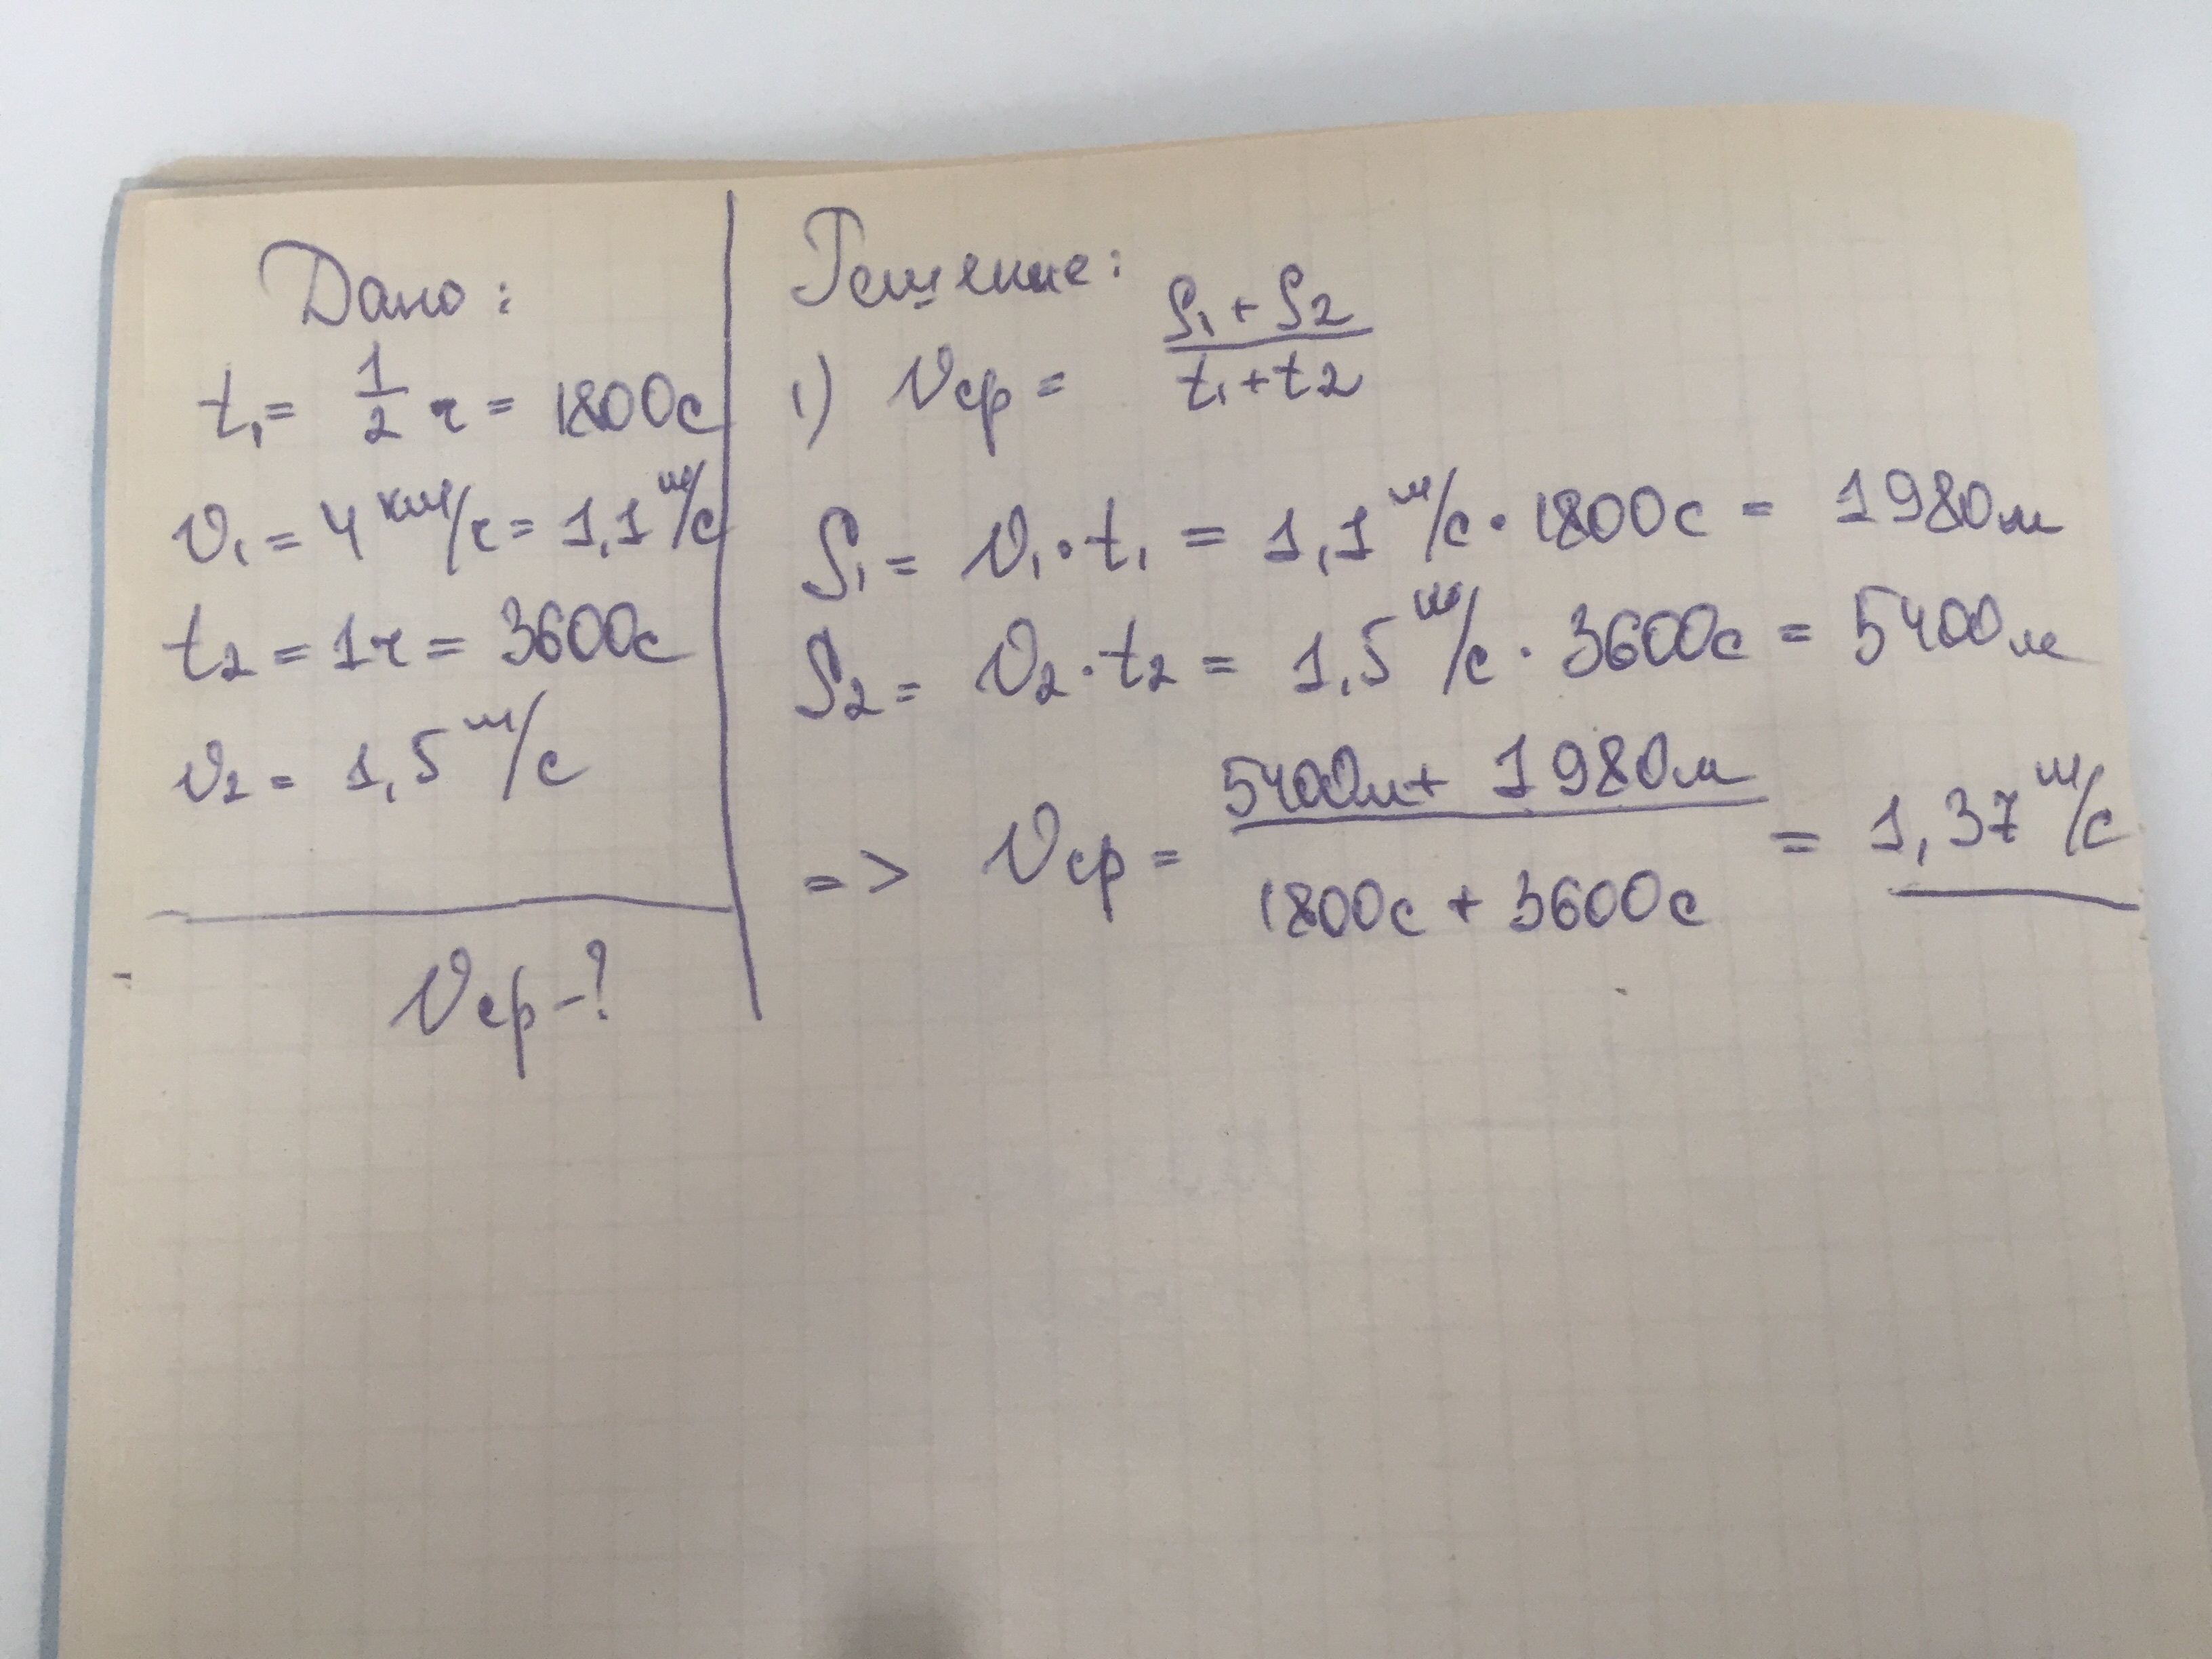 Дано:
t₁ = 1/2 ч = 1800с
v₁ = 4 км/ч = 1,1 м/с
t₂ = 1ч = 3600с
v₂ = 1,5 м/с
Vср - ?
Решение:
1) Vср = (S₁ + S₂)/(t₁ + t₂)
S₁ = v₁ · t₁ = 1,1 м/с · 1800с = 1980м
S₂ = v₂ · t₂ = 1,5 м/с · 3600с = 5400м
=> Vср = (5400м + 1980м)/(1800с + 3600с) = 1,37 м/с